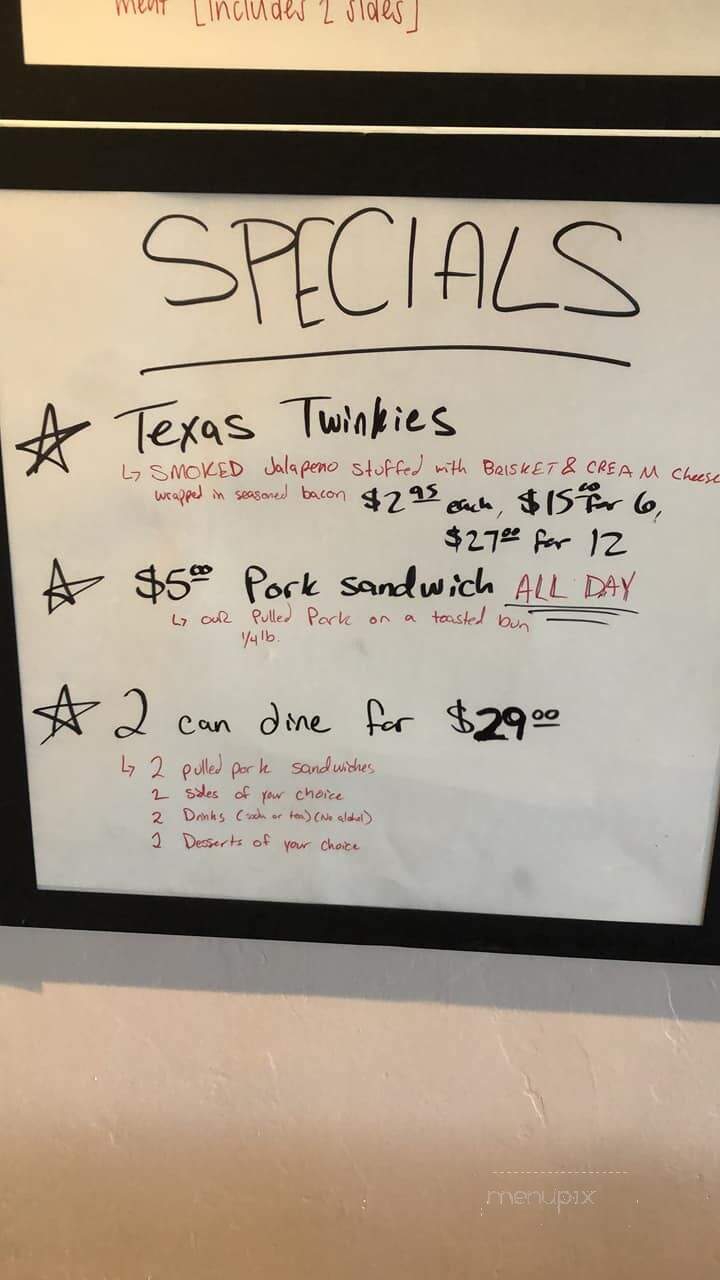 meat [includes 2 sides]
SPECIALS
☆ Texas Twinkies
↳ SMOKED Jalapeno stuffed with BRISKET & CREAM Cheese
wrapped in seasoned bacon $2.95 each, $15.00 for 6,
$27.00 for 12
☆ $5.00 Pork sandwich ALL DAY
↳ our Pulled Pork on a toasted bun
1/4 lb.
☆ 2 can dine for $29.00
↳ 2 pulled pork sandwiches
2 sides of your choice
2 Drinks (soda or tea) (No alchol)
2 Desserts of your choice
menupix